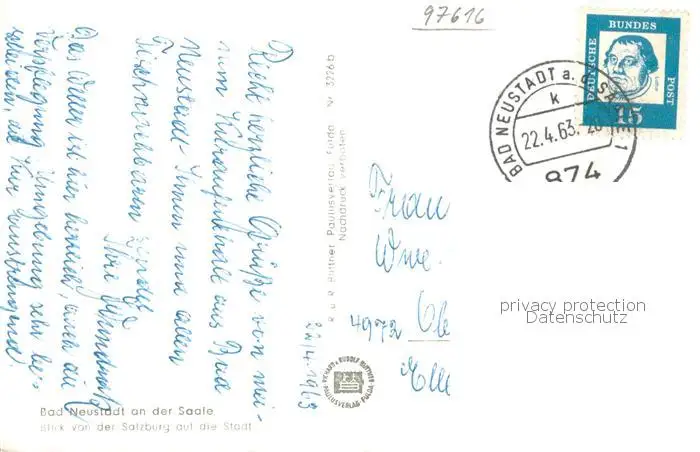 97616
DEUTSCHE
BUNDES
POST
15
BAD NEUSTADT a. d. SAALE 1
k
22.4.63.-20
874
22/4.1963
Recht herzliche Grüße von mei-
nem Kuraufenthalt aus Bad
Neustadt Ihnen und allen
Ihre
Das Wetter ist hier herrlich, auch die
Verpflegung Umgebung sehr be-
scheiden, die Kur anstrengend.
R u R Büttner Paulusverlag Fulda Nr 3226b
Nachdruck verboten
RICHARD u RUDOLF BÜTTNER
PAULUSVERLAG FULDA
Frau
Wwe.
4972
privacy protection
Datenschutz
Bad Neustadt an der Saale
Blick von der Salzburg auf die Stadt